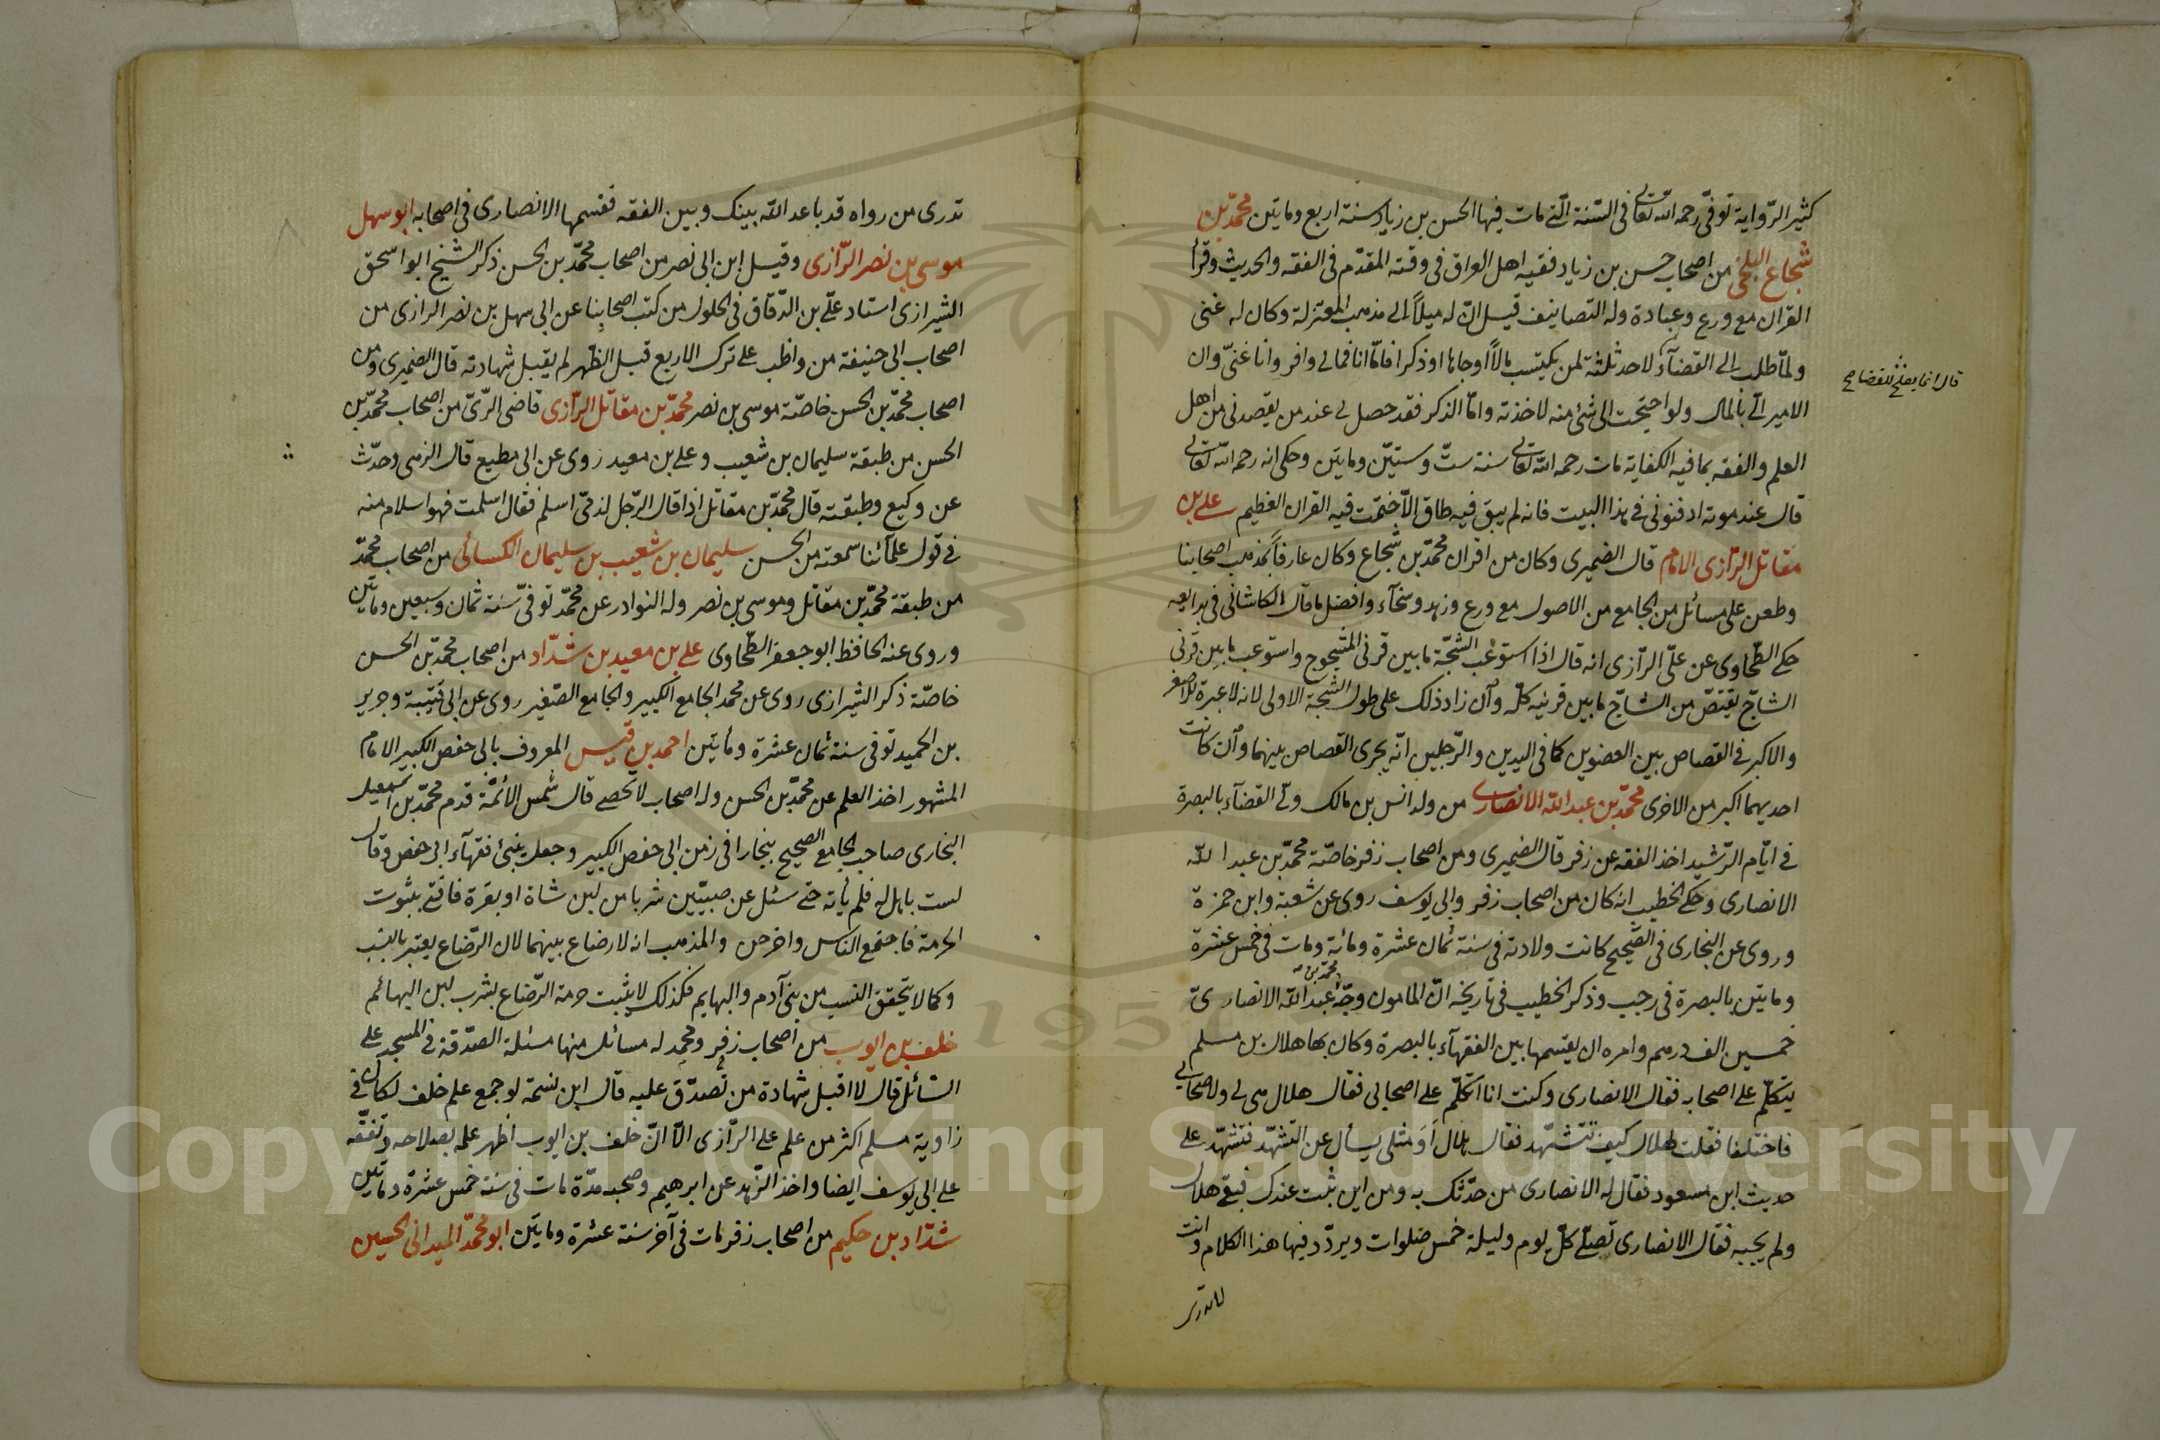 كثير الرواية توفي رحمه الله تعالى في السنة التي مات فيها الحسن بن زياد سنة اربع ومايتين محمد بن
شجاع البلخي من اصحاب حسن بن زياد فقيه اهل العراق في وقته المقدم في الفقه والحديث وقرأ
القران مع ورع وعبادة وله التصانيف قيل ان له ميلاً الى مذهب المعتزلة وكان له غنى
ولما طلب الى القضآء لاحد ثلثة لمن يكتسب مالاً او جاها او ذكرا فاما انا فمالي وافر وانا غني وان
قال انما يصلح للقضا صح
الامير بالمال ولو احتجت الى شئ منه لاخذته واما الذكر فقد حصل لي عند من يقصدني من اهل
العلم والفقه بما فيه الكفاية مات رحمه الله تعالى سنة ست وستين ومايتين وحكى انه رحمه الله تعالى
قال عند موته ادفنوني في هذا البيت فانه لم يبق فيه طاق الا ختمت فيه القران العظيم علي بن
مقاتل الرازي الامام قال الصيمري وكان من اقران محمد بن شجاع وكان عارفاً بمذهب اصحابنا
وطعن على مسائل من الجامع من الاصول مع ورع وزهد وسخآء وافضل ما قال الكاشاني في بدايعه
حكى الطحاوي عن علي الرازي انه قال اذا استوعب الشجة ما بين قرني المشجوج واستوعب ما بين قرني
الشاج يقتص من الشاج ما بين قرنيه كله وان زاد ذلك على طول الشجة الاولى لانه لا عبرة للاصغر
والاكبر في القصاص بين العضوين كما في اليدين والرجلين انه يجري القصاص بينهما وان كانت
احديهما اكبر من الاخرى محمد بن عبد الله الانصاري من ولد انس بن مالك ولي القضآء بالبصرة
في ايام الرشيد اخذ الفقه عن زفر قال الصيمري ومن اصحاب زفر خاصة محمد بن عبد الله
الانصاري وحكى الخطيب انه كان من اصحاب زفر وابي يوسف روى عن شعبة وابن حمزة
وروى عن البخاري في الصحيح كانت ولادته في سنة ثمان عشرة ومائة ومات في خمس عشرة
ومايتين بالبصرة في رجب وذكر الخطيب في تاريخه ان المامون وجه محمد بن عبد الله الانصاري
خمسين الف درهم وامره ان يقسمها بين الفقهآء بالبصرة وكان بها هلال بن مسلم
يتكلم على اصحابه فقال الانصاري وكنت انا اتكلم على اصحابي فقال هلال هي لي ولاصحابي
فاختلفنا فقلت لهلال كيف تتشهد فقال هلال او مثلي يسأل عن التشهد فتشهد على
حديث ابن مسعود فقال له الانصاري من حدثك به ومن اين ثبت عندك فبقي هلال
ولم يجبه فقال الانصاري تصلي كل يوم وليلة خمس صلوات ويردد فيها هذا الكلام وانت
لا تدري
تدري من رواه قد باعد الله بينك وبين الفقه فقسمها الانصاري في اصحابه ابو سهل
موسى بن نصر الرازي وقيل ابن ابي نصر من اصحاب محمد بن الحسن ذكر الشيخ ابو اسحق
الشيرازي استاد علي بن الدقاق في الحلول من كتب اصحابنا عن ابي سهل بن نصر الرازي من
اصحاب ابي حنيفة من واظب على ترك الاربع قبل الظهر لم يقبل شهادته قال الصيمري ومن
اصحاب محمد بن الحسن خاصة موسى بن نصر محمد بن مقاتل الرازي قاضي الري من اصحاب محمد بن
الحسن من طبقة سليمان بن شعيب وعلي بن معيد روى عن ابي مطيع قال الذهبي وحدث
عن وكيع وطبقته قال محمد بن مقاتل اذا قال الرجل لذمي اسلم فقال اسلمت فهو اسلام منه
في قول علمآئنا سمعته من الحسن سليمان بن شعيب بن سليمان الكسائي من اصحاب محمد
من طبقة محمد بن مقاتل وموسى بن نصر وله النوادر عن محمد توفي سنة ثمان وسبعين ومايتين
وروى عنه الحافظ ابو جعفر الطحاوي علي بن معيد بن شداد من اصحاب محمد بن الحسن
خاصة ذكر الشيرازي روى عن محمد الجامع الكبير والجامع الصغير روى عن ابي قتيبة وجرير
بن الحميد توفي سنة ثمان عشرة ومايتين احمد بن قيس المعروف بابي حفص الكبير الامام
المشهور اخذ العلم عن محمد بن الحسن وله اصحاب لا تحصى قال شمس الائمة قدم محمد بن اسمعيل
البخاري صاحب الجامع الصحيح ببخارا في زمن ابي حفص الكبير وجعل فقهآء ابي حفص وقال
لست باهل له فلم يأته حتى سئل عن صبيين شربا من لبن شاة او بقرة فافتى بثبوت
الحرمة فاجتمع الناس واخرجن والمذهب انه لا رضاع بينهما لان الرضاع يعتبر بالنسب
وكما لا يتحقق النسب من بني آدم والبهايم فكذلك لا يثبت حرمة الرضاع بشرب لبن البهائم
خلف بن ايوب من اصحاب زفر ومحمد له مسائل منها مسئلة الصدقة في المسجد على
السائل قال لا اقبل شهادة من تصدق عليه قال ابن لو جمع علم خلف لكان في
زاوية مسلم اكثر من علم علي الرازي الا ان خلف بن ايوب اظهر علمه بصلاحه وتفقه
على ابي يوسف ايضا واخذ الزهد عن ابرهيم وصحبه مدة مات في سنة خمس عشرة ومايتين
شداد بن حكيم من اصحاب زفر مات في آخر سنة عشرة ومايتين ابو محمد الميداني الحسين
Copyright © King Saud University
1957